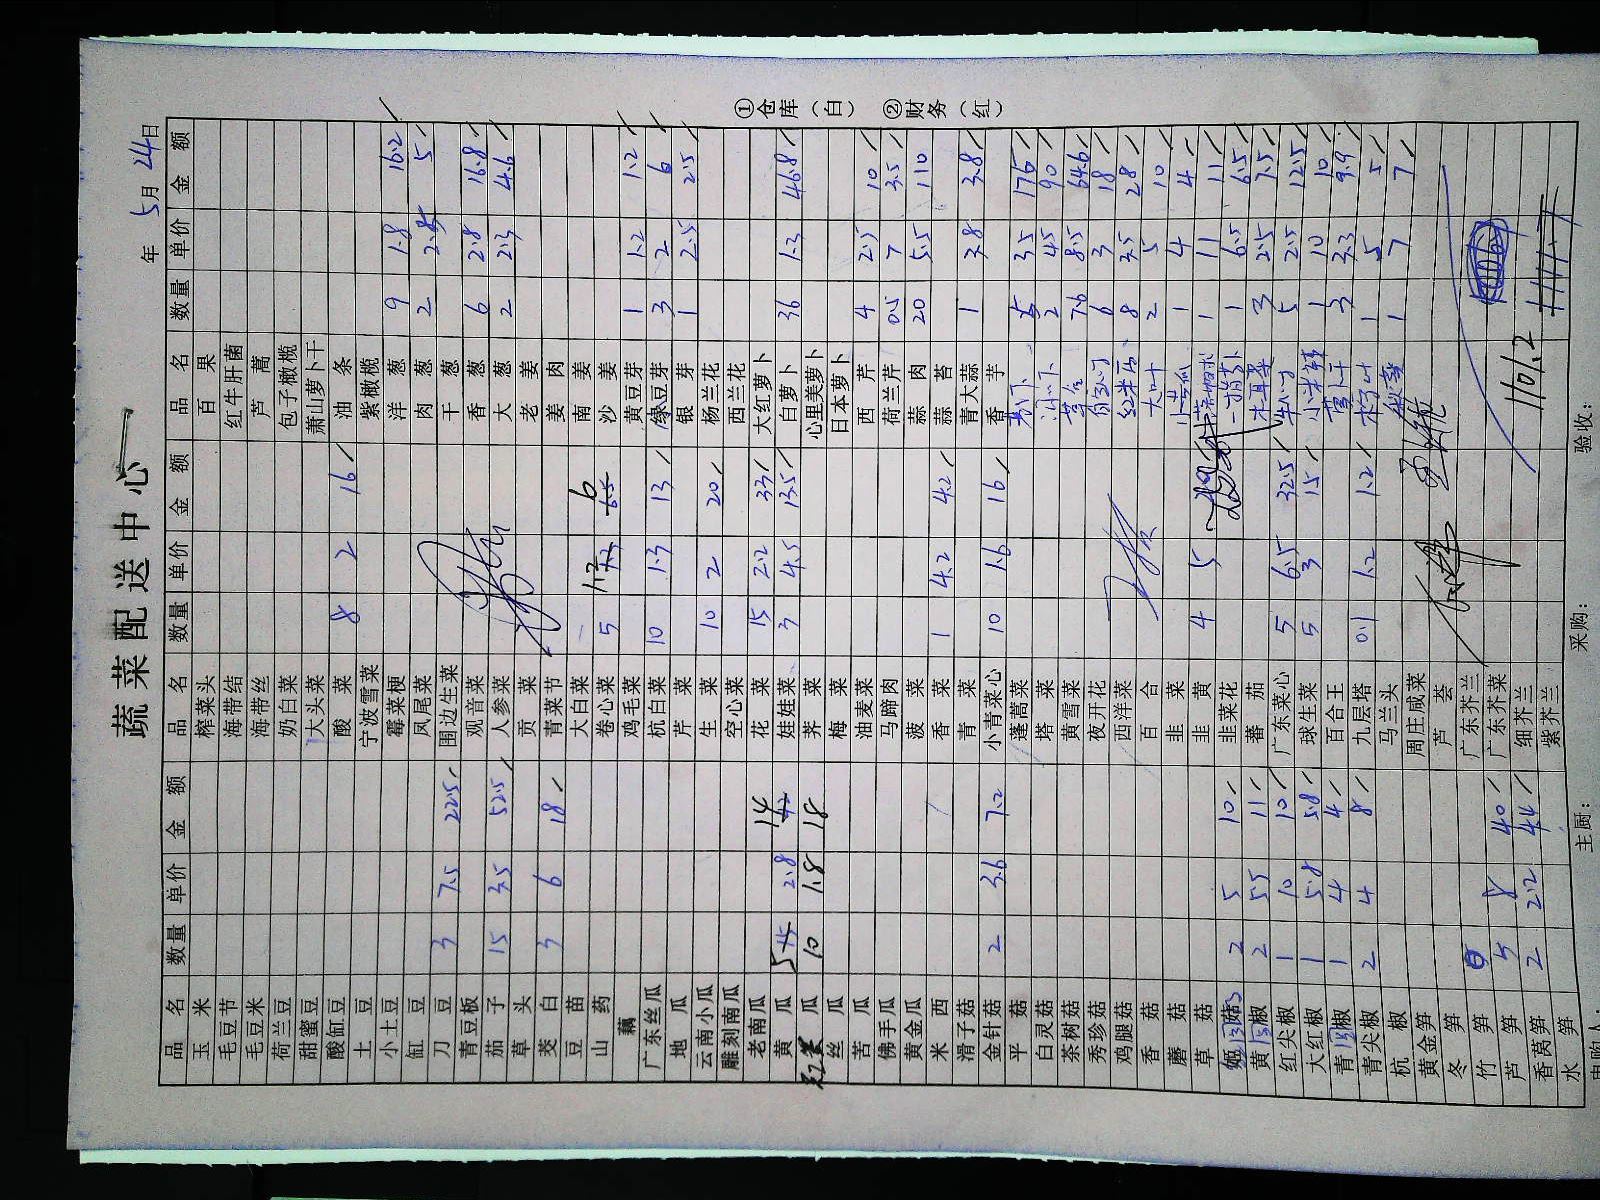 蔬菜配送中心
年 5月 24日
①仓库（白） ②财务（红）
品名 数量 单价 金额 品名 数量 单价 金额 品名 数量 单价 金额
玉米 榨菜头 百果
毛豆节 海带结 红牛肝菌
毛豆米 海带丝 芦蒿
荷兰豆 奶白菜 包子橄榄
甜蜜豆 大头菜 萧山萝卜干
酸缸豆 酸菜 8 2 16 油条
土豆 宁波雪菜 紫橄榄
小土豆 霉菜梗 洋葱 9 1.8 16.2
缸豆 凤尾菜 肉葱 2 2.5 5
刀豆 3 7.5 22.5 围边生菜 干葱
青豆板 观音菜 香葱 6 2.8 16.8
茄子 15 3.5 52.5 人参菜 大葱 2 2.3 4.6
草头 贡菜 老姜
茭白 3 6 18 青菜节 姜肉
豆苗 大白菜 南姜
山药 卷心菜 5 1.2 6 沙姜
藕 鸡毛菜 黄豆芽 1 1.2 1.2
广东丝瓜 杭白菜 10 1.3 13 绿豆芽 3 2 6
地瓜 芹菜 银芽 1 2.5 2.5
云南小瓜 生菜 10 2 20 杨兰花
雕刻南瓜 空心菜 西兰花
老南瓜 花菜 15 2.2 33 大红萝卜
黄瓜 5 2.8 14 娃娃菜 3 4.5 13.5 白萝卜 36 1.3 46.8
瓜 10 1.8 18 荠菜 心里美萝卜
丝瓜 梅菜 日本萝卜
苦瓜 油麦菜 西芹 4 2.5 10
佛手瓜 马蹄肉 荷兰芹 0.5 7 3.5
黄金瓜 菠菜 蒜肉 20 5.5 110
米西 香菜 1 4.2 4.2 蒜苔
滑子菇 青菜 青大蒜 1 3.8 3.8
金针菇 2 3.6 7.2 小青菜心 10 1.6 16 香芋
平菇 蓬蒿菜 5 35 175
白灵菇 塔菜 2 45 90
茶树菇 黄雪菜 草谷 7.6 8.5 64.6
秀珍菇 夜开花 6 3 18
鸡腿菇 西洋菜 红米苋 8 3.5 28
香菇 百合 大叶 2 5 10
蘑菇 韭菜 小黄瓜 1 4 4
草菇 韭黄 4 5 1 11 11
菇 2 5 10 韭菜花 1 6.5 6.5
黄椒 2 5.5 11 蕃茄 木耳菜 3 2.5 7.5
红尖椒 1 10 10 广东菜心 5 6.5 32.5 5 2.5 12.5
大红椒 1 5.8 5.8 球生菜 5 3 15 小米辣 1 10 10
青椒 1 4 4 百合王 萝卜干 3 3.3 9.9
青尖椒 2 4 8 九层塔 0.1 1.2 1.2 1 5 5
杭椒 马兰头 1 7 7
黄金笋 周庄咸菜
冬笋 芦荟
竹笋 广东芥兰
芦笋 5 8 40 广东芥菜
香莴笋 2 2.2 4.4 细芥兰 1101.2
水笋 紫芥兰
申购人： 主厨： 采购： 验收：